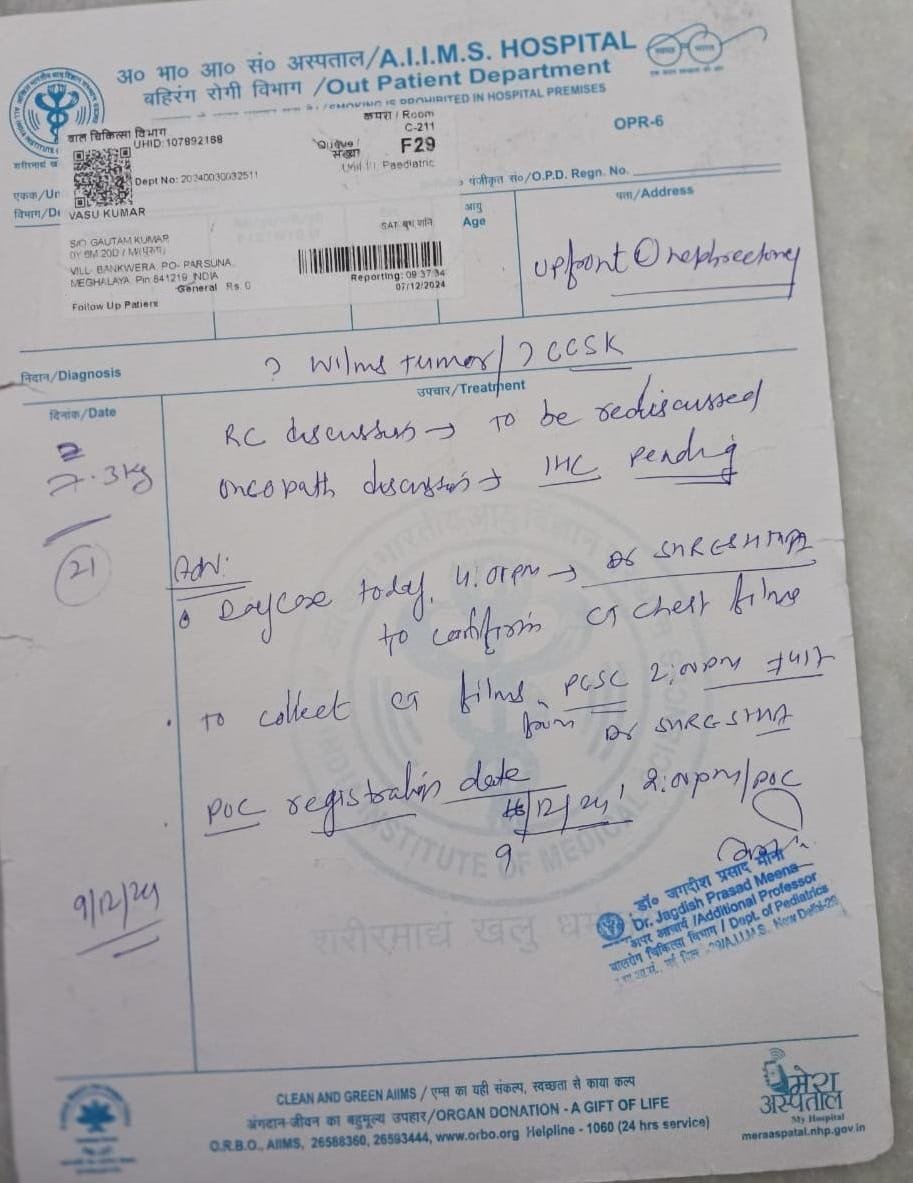 अ० भा० आ० सं० अस्पताल/A.I.I.M.S. HOSPITAL
बहिरंग रोगी विभाग /Out Patient Department
IS PROHIBITED IN HOSPITAL PREMISES
OPR-6
बाल चिकित्सा विभाग
UHID:107892188
कमरा / Room
C-211
Queue /
संख्या
F29
Paediatric
Dept No: 20240030032511
एकक/Un
विभाग/De
पंजीकृत सं०/O.P.D. Regn. No.
VASU KUMAR
आयु
Age
पता/Address
S/O GAUTAM KUMAR
0Y 8M 20D / M(पुरुष)
VILL- BANKWERA, PO- PARSUNA,
MEGHALAYA, Pin:841219, INDIA
General Rs. 0
Follow Up Patient
SAT बुध शनि
Reporting: 09:37:34
07/12/2024
upfront nephrectomy
निदान/Diagnosis
? Wilms tumor/ ? CCSK
दिनांक/Date
उपचार/Treatment
RC discussion → To be rediscussed
7.3kg
oncopath discussion → IHC pending
21
Adv:
Daycare today, 4:01pm →
to confirm CT chest films
To collect CT films, PCSC 2:00pm
from Dr
POC registration date
9/12/24, 2:00pm/POC
9/12/24
डॉ० जगदीश प्रसाद मीना
Dr. Jagdish Prasad Meena
अपर आचार्य /Additional Professor
बालरोग चिकित्सा विभाग / Dept. of Pediatrics
A.I.I.M.S. New Delhi-29
INSTITUTE OF MEDICAL SCIENCES
शरीरमाद्यं खलु
CLEAN AND GREEN AIIMS / एम्स का यही संकल्प, स्वच्छता से काया कल्प
अंगदान-जीवन का बहुमूल्य उपहार/ORGAN DONATION - A GIFT OF LIFE
O.R.B.O., AIIMS, 26588360, 26593444, www.orbo.org Helpline - 1060 (24 hrs service)
मेरा
अस्पताल
My Hospital
meraaspatal.nhp.gov.in